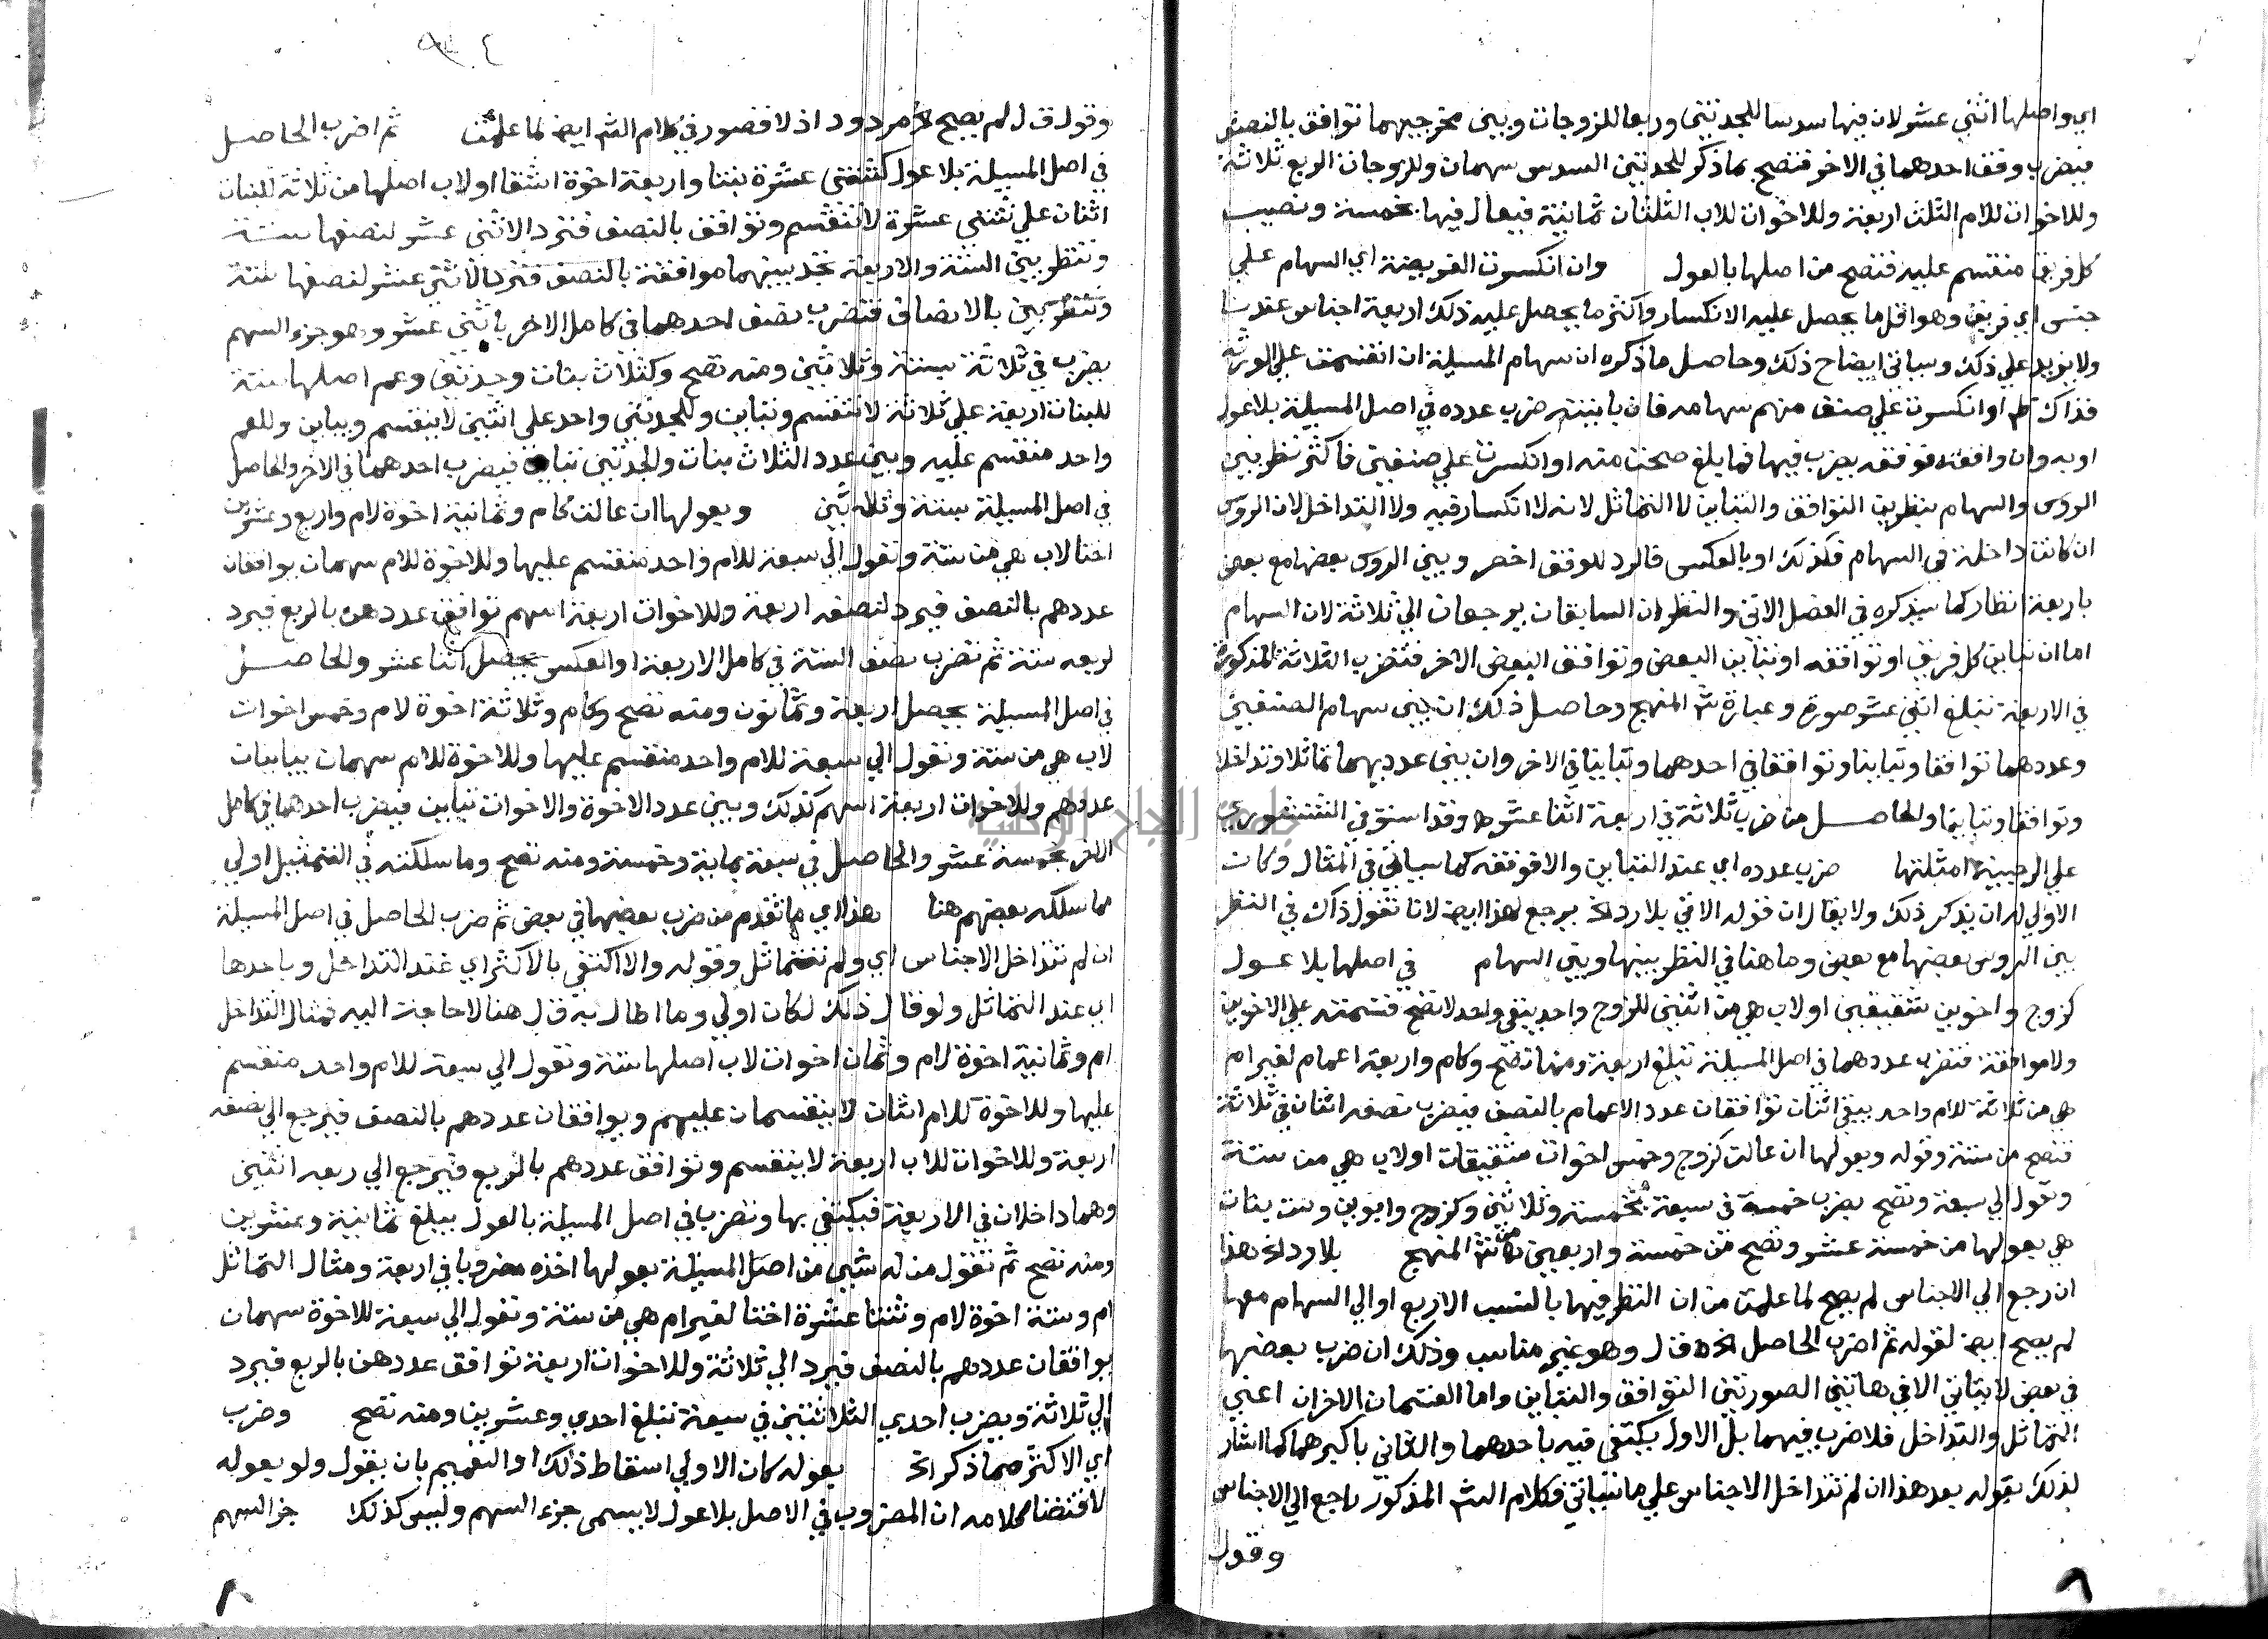 اي واصلها اثني عشر لان فيها سدسا للجدتين وربعا للزوجات وبين مخرجيهما توافق بالنصف
فيضرب وفق احدهما في الاخر فتصح بما ذكر للجدتين السدس سهمان وللزوجات الربع ثلاثة
وللاخوات للام الثلث اربعة وللاخوات للاب الثلثان ثمانية فيعال فيها بخمسة ونصيب
كل فريق منقسم عليه فتصح من اصلها بالعول وان انكسرت الفريضة اي السهام علي
جنس اي فريق وهو اقل ما يحصل عليه الانكسار واكثر ما يحصل عليه ذلك اربعة اجناس عندنا
ولا يزيد علي ذلك وسياتي ايضاح ذلك وحاصل ما ذكره ان سهام المسيلة ان انقسمت علي الورثة
فذاك او انكسرت علي صنف منهم سهامه فان باينته ضرب عدده في اصل المسيلة بلا عول
او به وان وافقته فوفقه يضرب فيها فما بلغ صحت منه او انكسرت علي صنفين فاكثر نظر بين
الروس والسهام بنظرين التوافق والتباين لا التماثل لانه لا انكسار فيه ولا التداخل لان الروس
ان كانت داخلة في السهام فكذلك او بالعكس فالرد للوفق اخصر وبين الروس بعضها مع بعض
باربعة انظار كما سيذكره في الفصل الاتي والنظران السابقان يرجعان الي ثلاثة لان السهام
اما ان تباين كل فريق او توافقه او تباين البعض وتوافق البعض الاخر فتضرب الثلاثة المذكورة
في الاربعة تبلغ اثني عشر صورة وعبارة ش المنهج وحاصل ذلك ان بين سهام الصنفين
وعددهما توافقا وتباينا وتوافقا في احدهما وتباينا في الاخر وان بين عدديهما تماثلا وتداخلا
وتوافقا وتباينا والحاصل من ضرب ثلاثة في اربعة اثنا عشر وقد استوفي الشنشوري
علي الرحبية امثلتها ضرب عدده اي عند التباين والا فوفقه كما سياتي في المثال وكان
الاولي له ان يذكر ذلك ولا يقال ان قوله الاتي بلا رد الخ يرجع لهذا ايض لانا نقول ذاك في النظر
بين الروس بعضها مع بعض وما هنا في النظر بينها وبين السهام في اصلها بلا عول
كزوج واخوين شقيقين او لاب هي من اثنين للزوج واحد يبقي واحد لا تصح قسمته علي الاخوين
ولا موافقة فتضرب عددهما في اصل المسيلة تبلغ اربعة ومنها تصح وكام واربعة اعمام لغير ام
هي من ثلاثة للام واحد يبقي اثنان توافقان عدد الاعمام بالنصف فيضرب نصفه اثنان في ثلاثة
فتصح من ستة وقوله وبعولها ان عالت كزوج وخمس اخوات شقيقات او لاب هي من ستة
وتعول الي سبعة وتصح بضرب خمسة في سبعة بخمسة وثلاثين وكزوج وابوين وست بنات
هي بعولها من خمسة عشر وتصح من خمسة واربعين من ش المنهج بلا رد الخ هذا
ان رجع الي الاجناس لم يصح لما علمت من ان النظر فيها بالنسب الاربع او الي السهام معها
لم يصح ايض لقوله ثم اضرب الحاصل الخ ق ل وهو غير مناسب وذلك ان ضرب بعضها
في بعض لا يتاتي الا في هاتين الصورتين التوافق والتباين واما القسمان الاخران اعني
التماثل والتداخل فلا ضرب فيهما بل الاول يكتفي فيه باحدهما والثاني باكبرهما كما اشار
لذلك بقوله بعد هذا ان لم تتداخل الاجناس علي ما سياتي فكلام الش المذكور راجع الي الاجناس
وقول
وقول ق ل لم يصح مردود اذ لا قصور في كلام الش ايض لما علمت ثم اضرب الحاصل
في اصل المسيلة بلا عول كثنتي عشرة بنتا واربعة اخوة اشقا او لاب اصلها من ثلاثة للبنات
اثنان علي ثنتي عشرة لا تنقسم وتوافق بالنصف فترد الاثني عشر لنصفها ستة
وتنظر بين الستة والاربعة تجد بينهما موافقة بالنصف فترد الاثني عشر لنصفها ستة
بالانصاف فتضرب نصف احدهما في كامل الاخر باثني عشر وهو جزء السهم
يضرب في ثلاثة بستة وثلاثين ومنه تصح وكثلاث بنات وجدتين وعم اصلها ستة
للبنات اربعة علي ثلاثة لا تنقسم وتباين وللجدتين واحد علي اثنين لا ينقسم ويباين وللعم
واحد منقسم عليه وبين عدد الثلاث بنات والجدتين تباين فيضرب احدهما في الاخر والحاصل
في اصل المسيلة بستة وثلاثين وبعولها ان عالت كام وثمانية اخوة لام واربع وعشرين
اختا لاب هي من ستة وتعول الي سبعة للام واحد منقسم عليها وللاخوة للام سهمان يوافقان
عددهم بالنصف فيرد لنصفه اربعة وللاخوات اربعة اسهم توافق عددهن بالربع فيرد
لربعه ستة ثم تضرب نصف الستة في كامل الاربعة او العكس يحصل اثنا عشر والحاصل
في اصل المسيلة يحصل اربعة وثمانون ومنه تصح وكام وثلاثة اخوة لام وخمس اخوات
لاب هي من ستة وتعول الي سبعة للام واحد منقسم عليها وللاخوة للام سهمان يباينان
عددهم وللاخوات اربعة اسهم كذلك وبين عدد الاخوة والاخوات تباين فيضرب احدهما في كامل
الاخر بخمسة عشر والحاصل في سبعة بماية وخمسة ومنه تصح وما سلكته في التمثيل اولي
مما سلكه بعضهم هنا هذا اي ما تقدم من ضرب بعضها في بعض ثم ضرب الحاصل في اصل المسيلة
ان لم تتداخل الاجناس اي ولم تتماثل وقوله والا اكتفي بالاكثر اي عند التداخل وباحدها
اي عند التماثل ولو قال ذلك لكان اولي وما اطال به ق ل هنا لا حاجة اليه فمثال التداخل
ام وثمانية اخوة لام وثمان اخوات لاب اصلها ستة وتعول الي سبعة للام واحد منقسم
عليها وللاخوة للام اثنان لا ينقسمان عليهم ويوافقان عددهم بالنصف فيرجع الي نصفه
اربعة وللاخوات للاب اربعة لا ينقسم وتوافق عددهم بالربع فيرجع الي ربعه اثنين
وهما داخلان في الاربعة فيكتفي بها وتضرب في اصل المسيلة بالعول يبلغ ثمانية وعشرين
ومنه تصح ثم تقول من له شيئ من اصل المسيلة بعولها اخذه مضروبا في اربعة ومثال التماثل
ام وستة اخوة لام وثنتا عشرة اختا لغير ام هي من ستة وتعول الي سبعة للاخوة سهمان
يوافقان عددهم بالنصف فيرد الي ثلاثة وللاخوات اربعة توافق عددهن بالربع فيرد
الي ثلاثة ويضرب احدي الثلاثتين في سبعة تبلغ احدي وعشرين ومنه تصح وضرب
اي الاكثر مما ذكر الخ بعوله كان الاولي اسقاط ذلك او التعميم بان يقول ولو بعوله
لاقتضا كلامه ان المضروب في الاصل بلا عول لا يسمي جزء السهم وليس كذلك جز السهم
٨
٨
جامعة النجاح الوطنية